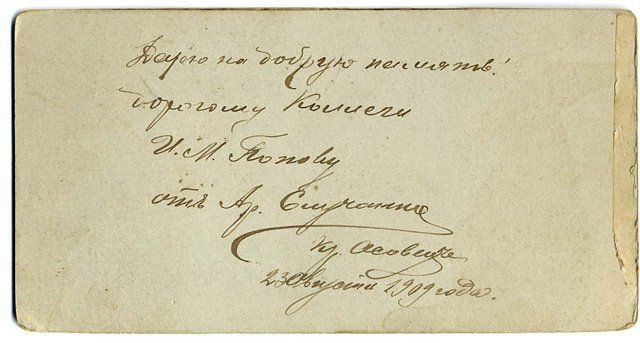 Дарю на добрую память!
дорогому Коллеги
И. М. Попову
отъ Ар.
кр. Осовецъ
23 Августа 1909 года.